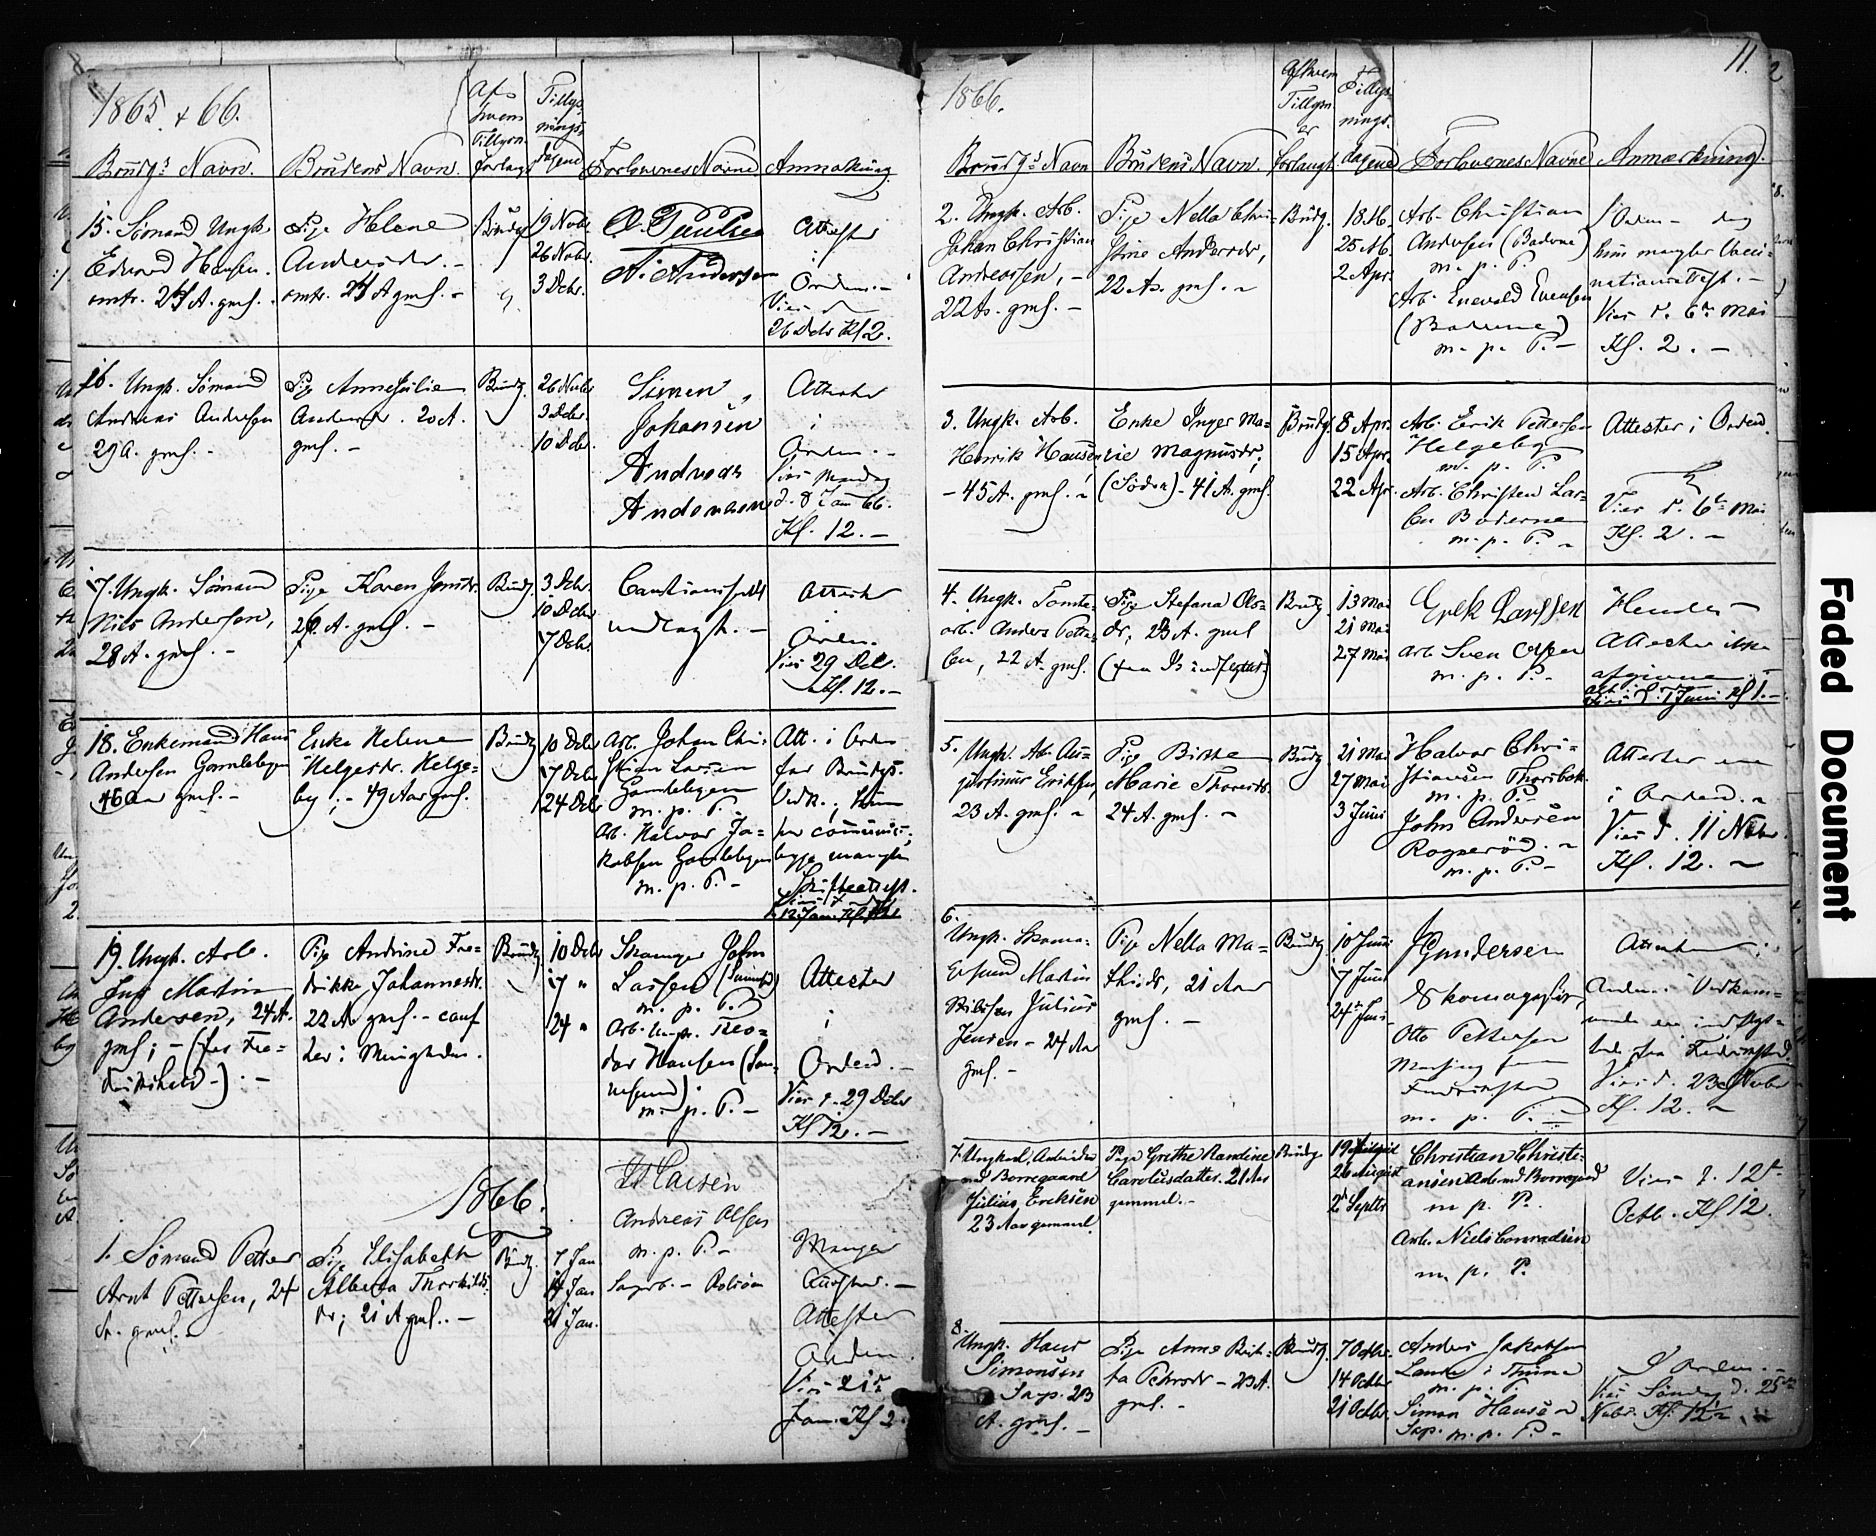 1865 + 66.
Af hvem Tillysn. forlagt
Tillysnings dagene
Brudg.s Navn. Brudens Navn. Forlovernes Navne Anmærkning.
15. Sømand Ungk. Edvard Hansen. omtr. 24 A. gml.
Pige Helene Andersdr. omtr. 24 A gml. -
Brudg.
19 Novbr
26 Novbr.
3 Decbr.
A. Andersen
Attester
i
Orden. -
Vies d
26 Decbr Kl 2.
16. Ungk. Sømand
Andreas Andersen
29 A. gml. -
Pige Anne Julie
Andersdr. 20 A.
gml. -
Brudg.
26 Novbr
3 Decbr.
10 Decbr.
Simen
Johansen
Andreas
Andersen
Attester
i
Orden. -
Vies Mandag
d. 8 Jan 66.
Kl. 12. -
17. Ungk. Sømand
Nils Andersen,
28 A. gml. -
Pige Karen Jensdr.
26 A. gml. -
Brudg.
3 Decbr.
10 Decbr
17 Decbr.
Cautionsseddel
modtagt. -
Attester
i
Orden.
Vies 29 Dec.
Kl. 12. -
18. Enkemand Hans
Andersen Gamlebyen
46 Aar gml. -
Enke Helene
Helgesdr. Helge-
by, - 49 Aar gml.
Brudg.
10 Decbr
17 Decbr
24 Decbr
Arb. Johan Chri-
stian Larsen
Gamlebyen
m. p. P. -
Arb. Halvor Ja-
kobsen Gamlebyen
m. p. P. -
Att. i Orden
for Brudgs.
Vedk.; hun
har
begge mangler
Skifteattest.
12 Jan. Kl 12
19. Ungk. Arb.
Jens Martin
Andersen, 24 A.
gml; - (fra Fre-
drikshald -) . -
Pige Andrine Fre-
drikke Johannesdr.
22 A. gml. - conf
her i Menigheden.
Brudg.
10 Decbr
17 "
24 "
John
Larsen
m. p. P.
Arb. Ungk. Theo-
dor Hansen
m. p. P. -
Attester
i
Orden. -
Vies d. 29 Decbr
Kl 12. -
1866.
1. Sømand Petter
Arnt Pettersen, 24
A. gml. -
Pige Elisabeth
Alberta Thorkilds-
dr; 21 A gml. -
Brudg.
7 Jan
14 Jan
21 Jan.
Larsen
Andreas Olsen
m. p. P. -
Mangler
Attester. -
Attester
i
Orden.
Vies 21d
Jan. Kl 2.
11.
1866.
Af hvem Tillysn. er forlangt
Tillysnings. dagene
Brudg.s Navn Brudens Navn. Forlovernes Navne Anmærkning.
2. Ungk. Arb.
Johan Christian
Andreassen, -
22 A. gml. -
Pige Nella Chri-
stine Andersdr,
22 A. gml. -
Brudg.
18 M.
25 M.
2 Apr.
Arb. Christian
Andersen (Baderne)
m. p. P.
Arb. Enevold Evensen
(Baderne)
m. p. P. -
I Orden - dog
hun mangler Vacci-
nationsattest. -
Vies d. 6te Mai
Kl. 2. -
3. Ungk. Arb.
Henrik Hansen
- 45 A. gml. -
Enke Inger Ma-
rie Magnusdr;
- 41 A. gml.
Brudg.
8 Apr.
15 Apr.
22 Apr.
Arb. Erik Pettersen
Helgeby
m. p. P.
Arb. Christen Lar-
sen Baderne
m. p. P. -
Attester i Orden.
Vies d. 6te Mai
Kl. 2. -
4. Ungk. Tomte-
arb. Anders Petter-
sen, 22 A. gml.
Pige Stefana Ols-
dr, 23 A. gml
Brudg.
13 Mai
21 Mai
27 Mai
Erek Larssen
Arb. Sven Olsen
m. p. P. -
Hendes
Attester ikke
afgivne
Vies d. 1 Juni Kl 1. -
5. Ungk. Arb. Au-
gustinus Eriksen,
23 A. gml. -
Pige Birthe
Marie Thorersdr.
24 A. gml. -
Brudg.
21 Mai
27 Mai
3 Juni
Halvor Chri-
stiansen Thorsbek.
m. p. P. -
John Andersen
Rogserød. -
m. p. P. -
Attester ere
i Orden. -
Vies d. 11 Nbr.
Kl. 12. -
6. Ungk. Skoma-
gersvend Martin
Nilssen Julius
Jensen - 24 Aar
gml. -
Pige Nella Ma-
thisdr, 21 Aar
gml. -
Brudg.
10 Juni
17 Juni
24de Juni
J Gundersen
Skomager,
Otto Pettersen
fra
Fredrikstad
m. p. P. -
Attester i
Orden. Vedkom-
mende ere indflyt-
tede fra Fredrikstad.
Vies d. 23 Novbr
Kl. 12. -
7. Ungkarl, Arbeider
ved Borregaard
Julius Ericksen
23 Aar gammel.
Pige Grethe Randine
Carolusdatter. 21 Aar
gammel. -
Brudg
19 August
26 August
2 Septbr
Christian Christi-
ansen Arb. ved Borregaard
m. p. P.
Arb. Niels Conradsen
m. p. P.
Vies d. 12te
Octb. Kl 12.
8. Ungk. Hans
Simonsen
Sarp. 23
A. gml. -
Pige Anne Birt-
ta Pedersdr - 23 A.
gml. -
Brudg.
7 Octbr.
14 Octbr
21 Octbr.
Anders Jakobsen
Lande i Thune
m. p. P.
Simon Hansen
Sarp. m. p. P. -
I Orden. -
Vies Søndag d. 25de
Nobr. Kl. 12
Faded Document